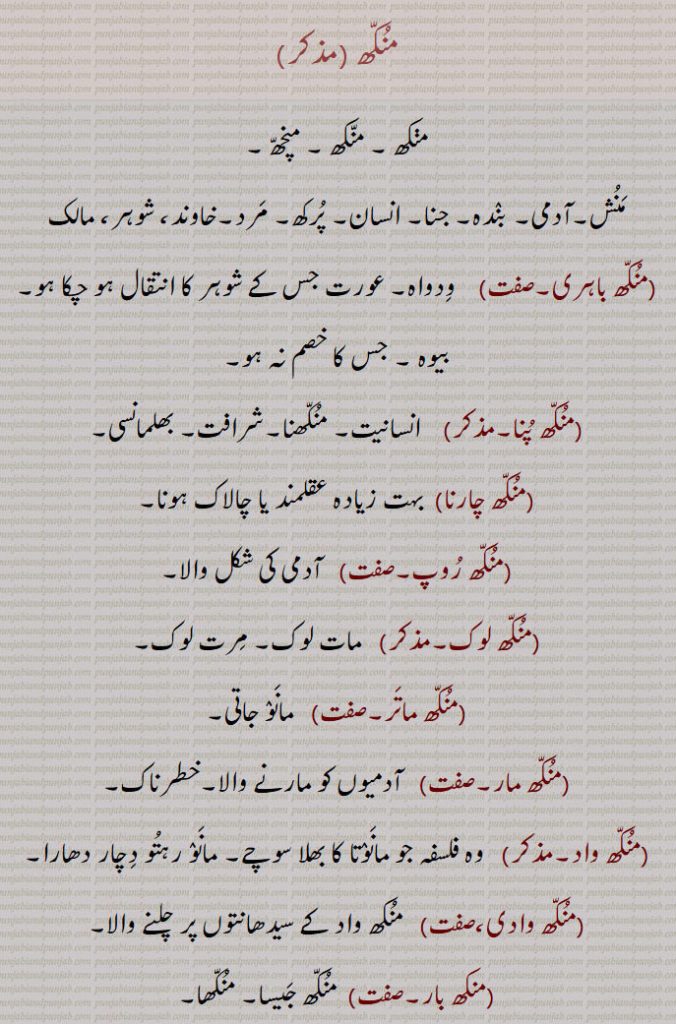 منُکھّ (مذکر)
منکھ ۔ منّکھ ۔ منچھّ ۔
مَنُش۔آدمی۔ بنْدہ۔ جنا۔ انسان۔ پُرکھ۔ مَرد۔خاوند، شوہر، مالک
(منُکھّ باہری۔صفت) وِدواہ۔ عورت جس کے شوہر کا انتقال ہو چکا ہو۔
بیوہ ۔ جس کا خصم نہ ہو۔
(منُکھّ پُنا۔مذکر) انسانیت۔ منُکھّنا۔شرافت۔ بھلمانسی۔
(منُکھّ چارنا) بہت زیادہ عقلمند یا چالاک ہونا۔
(منُکھّ رُوپ۔صفت) آدمی کی شکل والا۔
(منُکھّ لوک۔مذکر) مات لوک۔ مِرت لوک۔
(منُکھّ ماتَر۔صفت) مانَوْ جاتی۔
(منُکھّ مار۔صفت) آدمیوں کو مارنے والا۔خطرناک۔
(منُکھّ واد۔مذکر) وہ فلسفہ جو مانَوْتا کا بھلا سوچے۔ مانَوْ رہتُو دِچار دھارا۔
(منُکھّ وادی،صفت) منُکھ واد کے سیدھانتوں پر چلنے والا۔
(منکھ بار۔صفت) منُکھّ جَیسا۔ منُکھّا۔